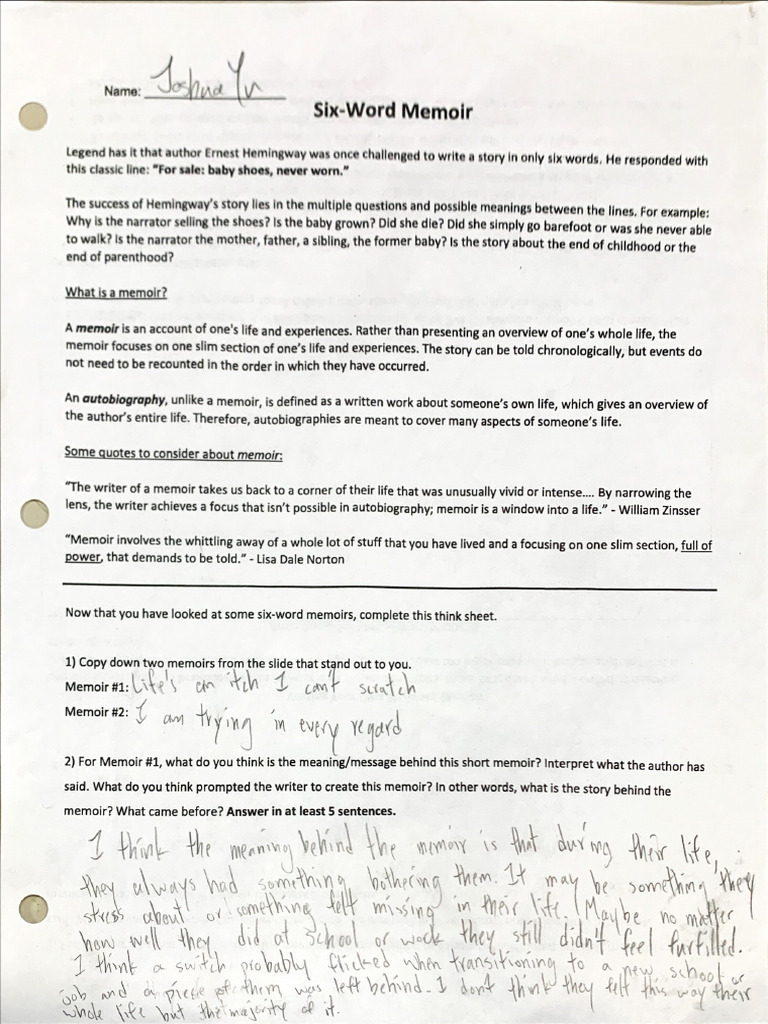 Name: Joshua Yu
Six-Word Memoir
Legend has it that author Ernest Hemingway was once challenged to write a story in only six words. He responded with
this classic line: "For sale: baby shoes, never worn."
The success of Hemingway's story lies in the multiple questions and possible meanings between the lines. For example:
Why is the narrator selling the shoes? Is the baby grown? Did she die? Did she simply go barefoot or was she never able
to walk? Is the narrator the mother, father, a sibling, the former baby? Is the story about the end of childhood or the
end of parenthood?
What is a memoir?
A memoir is an account of one's life and experiences. Rather than presenting an overview of one's whole life, the
memoir focuses on one slim section of one's life and experiences. The story can be told chronologically, but events do
not need to be recounted in the order in which they have occurred.
An autobiography, unlike a memoir, is defined as a written work about someone's own life, which gives an overview of
the author's entire life. Therefore, autobiographies are meant to cover many aspects of someone's life.
Some quotes to consider about memoir:
"The writer of a memoir takes us back to a corner of their life that was unusually vivid or intense.... By narrowing the
lens, the writer achieves a focus that isn't possible in autobiography; memoir is a window into a life." - William Zinsser
"Memoir involves the whittling away of a whole lot of stuff that you have lived and a focusing on one slim section, full of
power, that demands to be told." - Lisa Dale Norton
Now that you have looked at some six-word memoirs, complete this think sheet.
1) Copy down two memoirs from the slide that stand out to you.
Memoir #1: Life's an itch I can't scratch
Memoir #2: I am trying in every regard
2) For Memoir #1, what do you think is the meaning/message behind this short memoir? Interpret what the author has
said. What do you think prompted the writer to create this memoir? In other words, what is the story behind the
memoir? What came before? Answer in at least 5 sentences.
I think the meaning behind the memoir is that during their life,
they always had something bothering them. It may be something they
stress about or something felt missing in their life. Maybe no matter
how well they did at school or work they still didn't feel furfilled.
I think a switch probably flicked when transitioning to a new school or
job and a piece of them was left behind. I don't think they felt this way their
whole life but the majority of it.